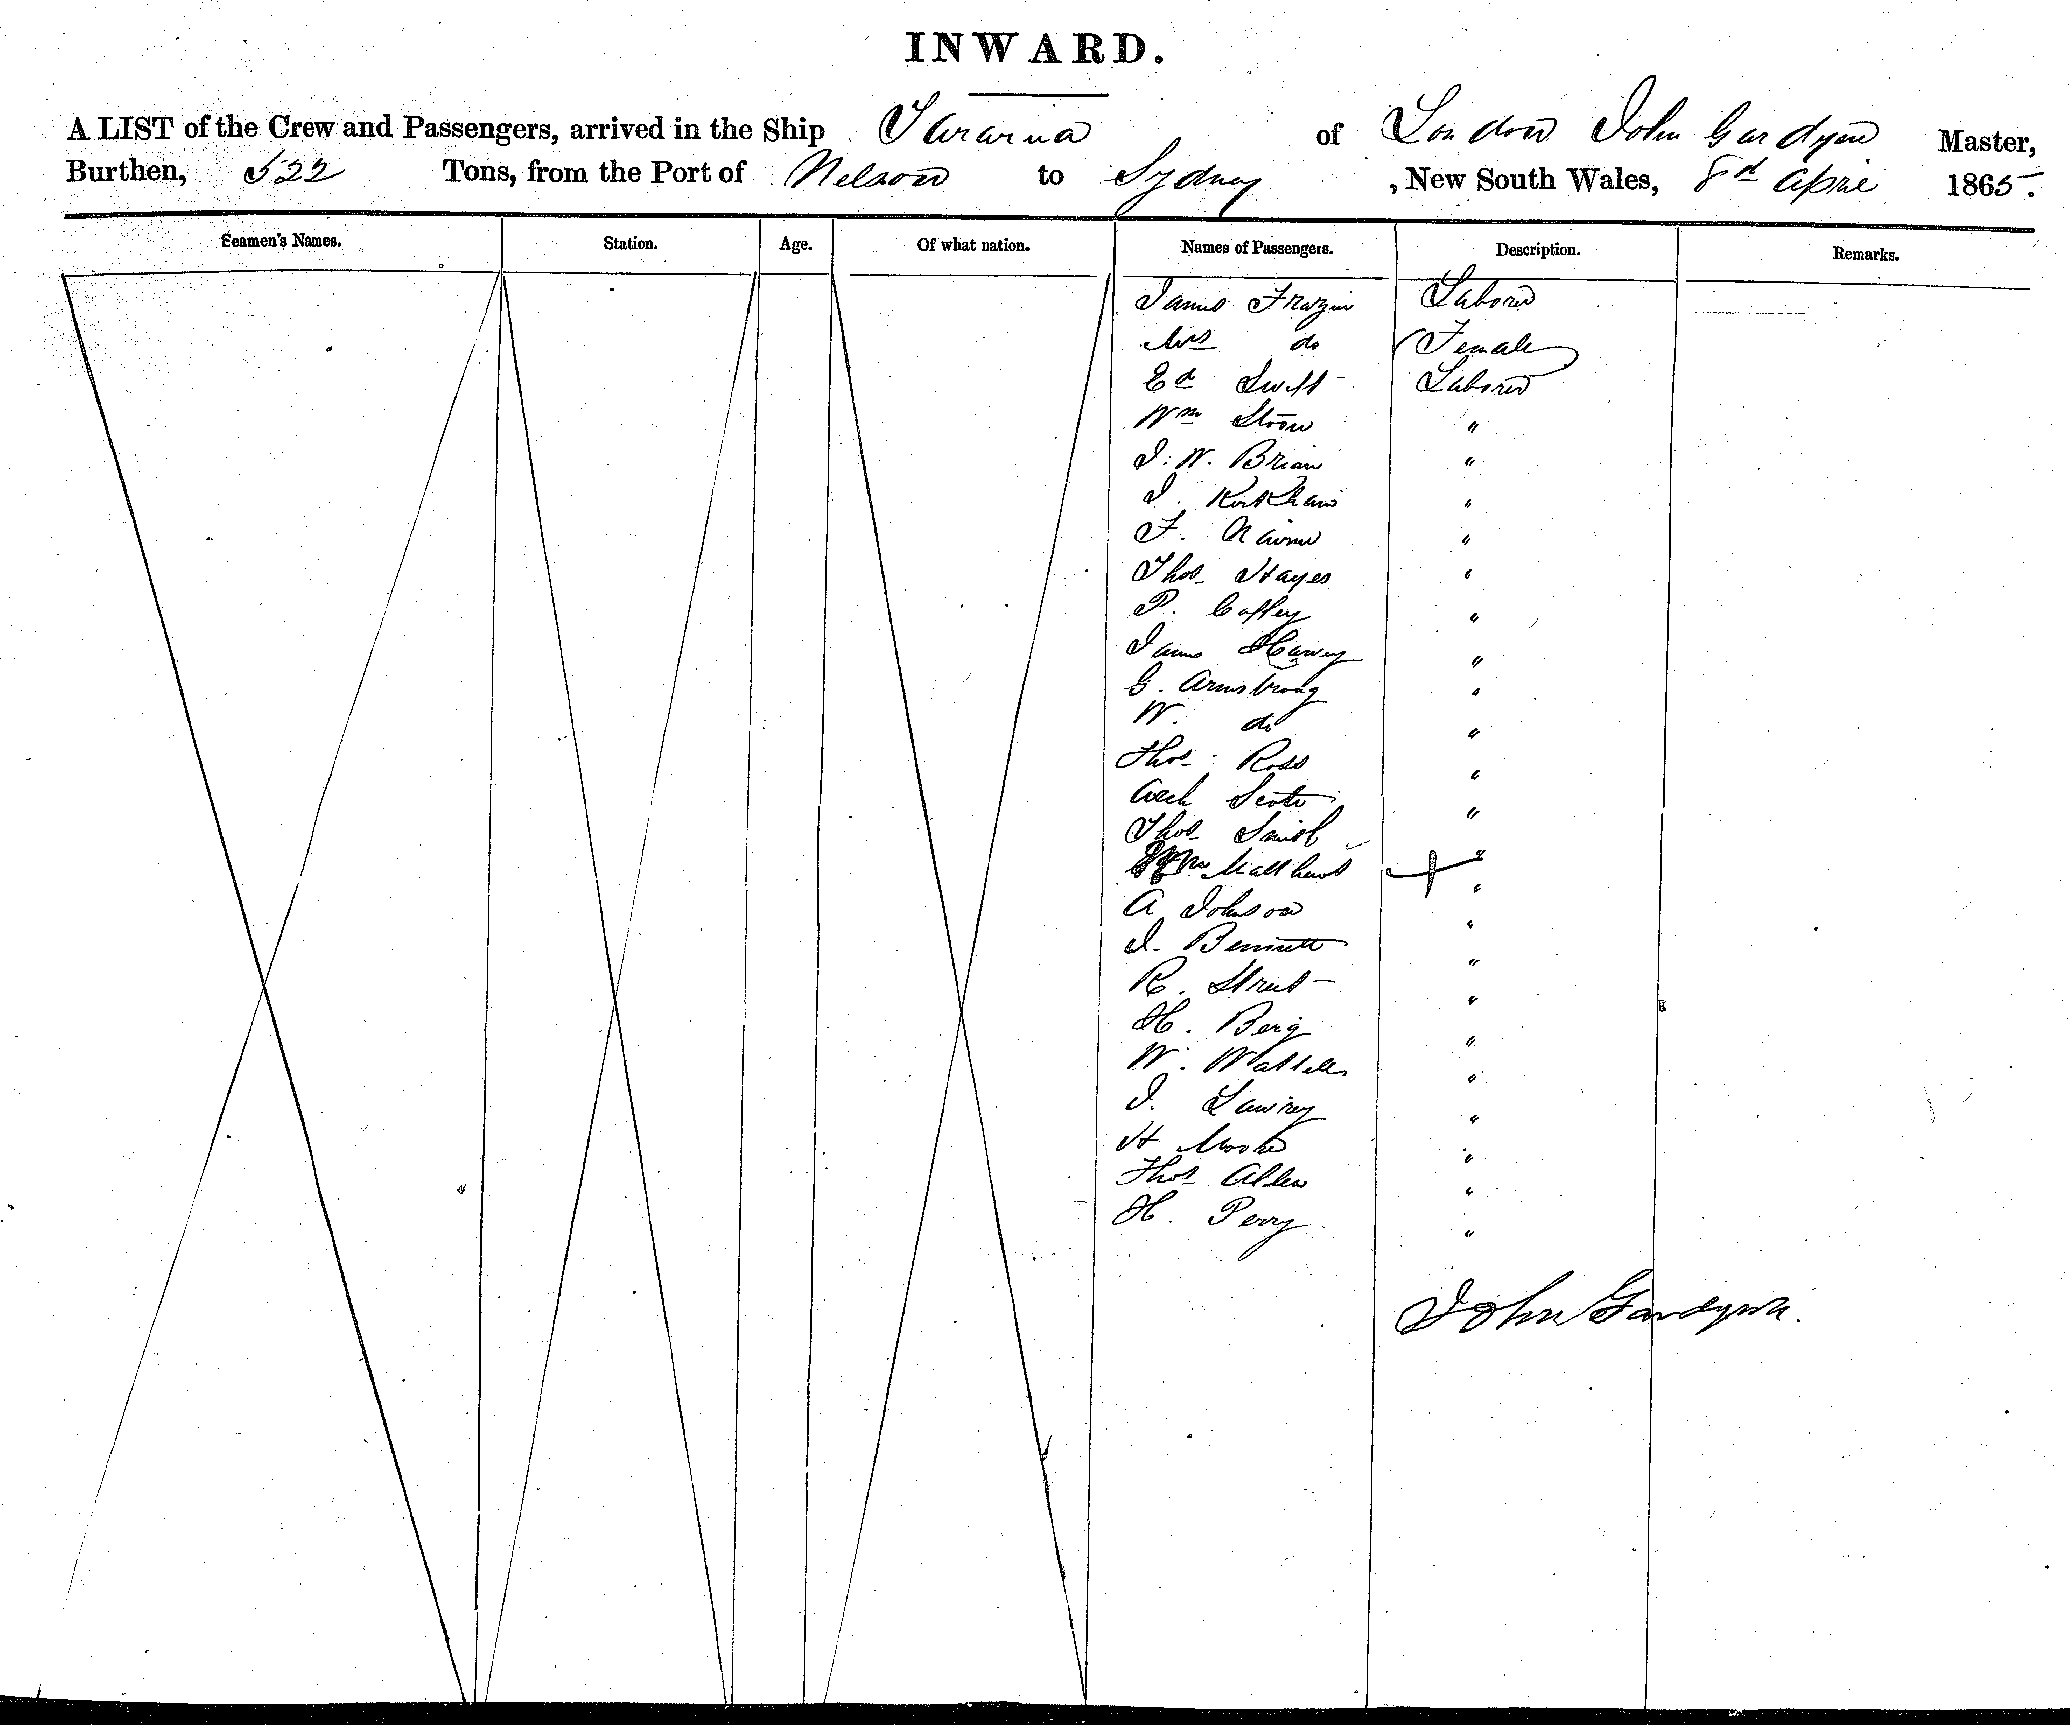 INWARD.
A LIST of the Crew and Passengers, arrived in the Ship Tararua of London John Gardyne Master,
Burthen, 522 Tons, from the Port of Nelson to Sydney , New South Wales, 8d April 1865.
Seamen's Names. Station. Age. Of what nation. Names of Passengers. Description. Remarks.
James Frazier Laborer
Mrs do Female
Ed Swift Laborer
Wm "
J. W. Brian "
J. Kirkham "
F. Nairne "
Thos Hayes "
P. Coffey "
James Harvey "
G. Armstrong "
W. do "
Thos Ross "
Arch Scott "
Thos Smith "
Wm Matthews "
A Johnson "
J. Bennett "
R. Street "
H. Berg "
W. "
J. Lawrey "
H Moore "
Thos Allen "
H. Perry "
John Gardyne.